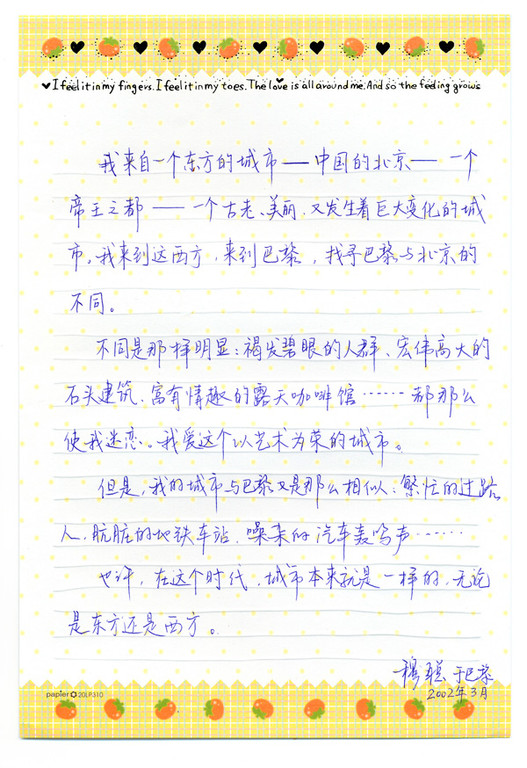 I feel it in my fingers. I feel it in my toes. The love is all around me. And so the feeling grows
我来自一个东方的城市——中国的北京——一个
帝王之都——一个古老、美丽、又发生着巨大变化的城
市。我来到这西方,来到巴黎,找寻巴黎与北京的
不同。
不同是那样明显:褐发碧眼的人群、宏伟高大的
石头建筑、富有情趣的露天咖啡馆……都那么
使我迷恋。我爱这个以艺术为荣的城市。
但是,我的城市与巴黎又是那么相似:繁忙的过路
人,肮脏的地铁车站,噪杂的汽车轰鸣声……
也许,在这个时代,城市本来就是一样的,无论
是东方还是西方。
穆聪 于巴黎
2002年3月
papier 20LP310